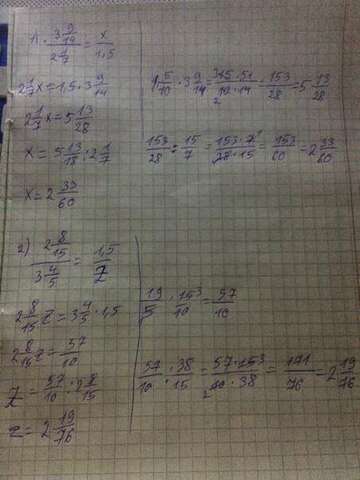 1. 3 9/14 / 2 1/7 = x / 1,5
2 1/7 x = 1,5 · 3 9/14
2 1/7 x = 5 13/28
x = 5 13/18 : 2 1/7
x = 2 33/60
1 5/10 · 3 9/14 = 15 · 51 / 10 · 14 2 = 153/28 = 5 13/28
153/28 : 15/7 = 153 · 7 1 / 28 · 15 = 153/60 = 2 33/60
2) 2 8/15 / 3 4/5 = 1,5 / z
2 8/15 z = 3 4/5 · 1,5
2 8/15 z = 57/10
z = 57/10 : 2 8/15
z = 2 19/76
19/5 · 15 3 / 10 = 57/10
57/10 : 38/15 = 57 · 15 3 / 10 · 38 2 = 171/76 = 2 19/76